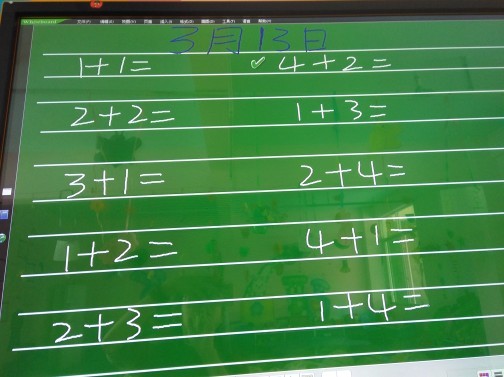 3月13日
1+1= ✓4+2=
2+2= 1+3=
3+1= 2+4=
1+2= 4+1=
2+3= 1+4=